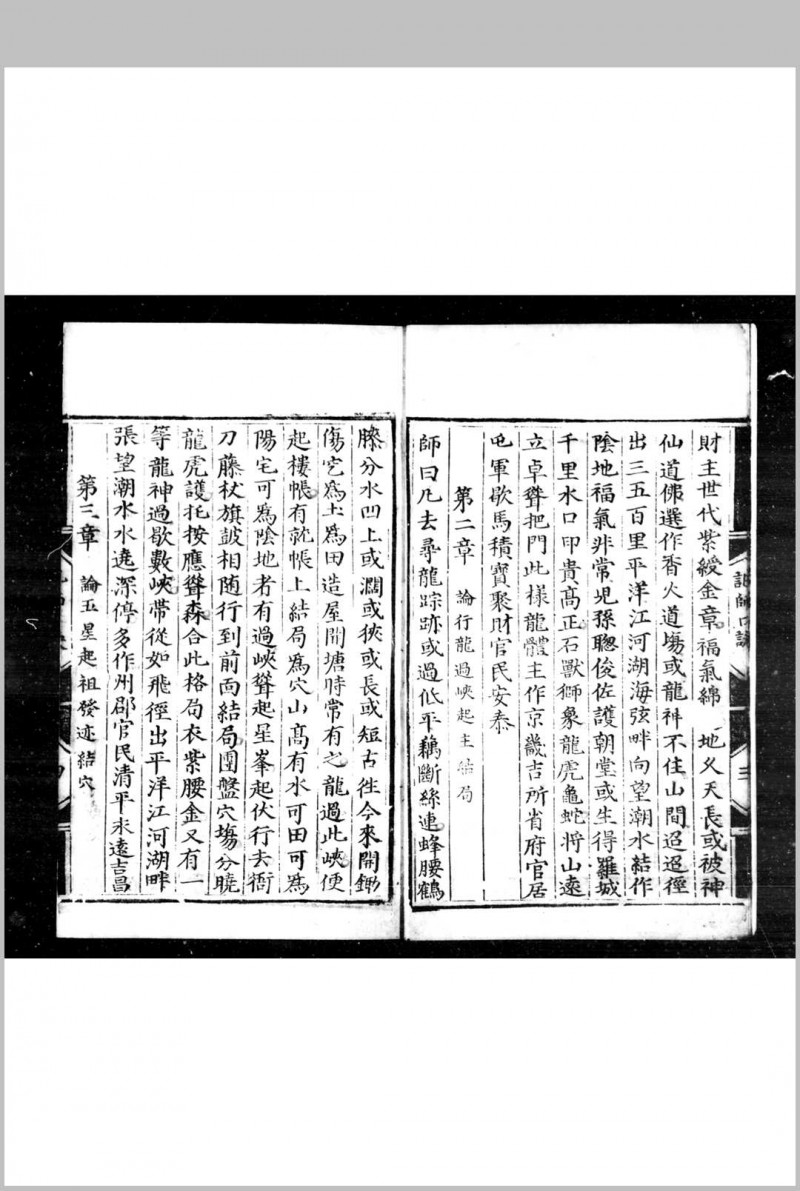 財主世代紫綬金章福氣綿 地久天長或被神
仙道佛選作香火道塲或龍神不住山間迢迢徑
出三五百里平洋江河湖海弦畔向望潮水結作
陰地福氣非常児孫聰俊佐護朝堂或生得羅城
千里水口印貴髙正石獸獅象龍虎龜蛇将山遠
立卓聳把門此様龍體主作京畿吉所省府官居
屯軍歇馬積寶聚財官民安泰
第二章 論行龍過峽起主結局
師曰凢去尋龍踪跡或過低平藕斷絲連蜂腰鶴
膝分水凹上或濶或狹或長或短古徃今來開鋤
傷宅爲圡爲田造屋開塘時常有之龍過此峽便
起樓帳有就帳上結局爲穴山髙有水可田可爲
陽宅可爲陰地者有過峽聳起星峯起伏行去衙
刀藤杖旗皷相随行到前靣結局團盤穴塲分曉
龍虎護托按應聳森合此格局衣紫腰金又有一
等龍神過歇數峽帶從如飛徑出平洋江河湖畔
張望潮水水遶深停多作州郡官民清平永遠吉昌
第三章 論五星起祖發迹結穴
三